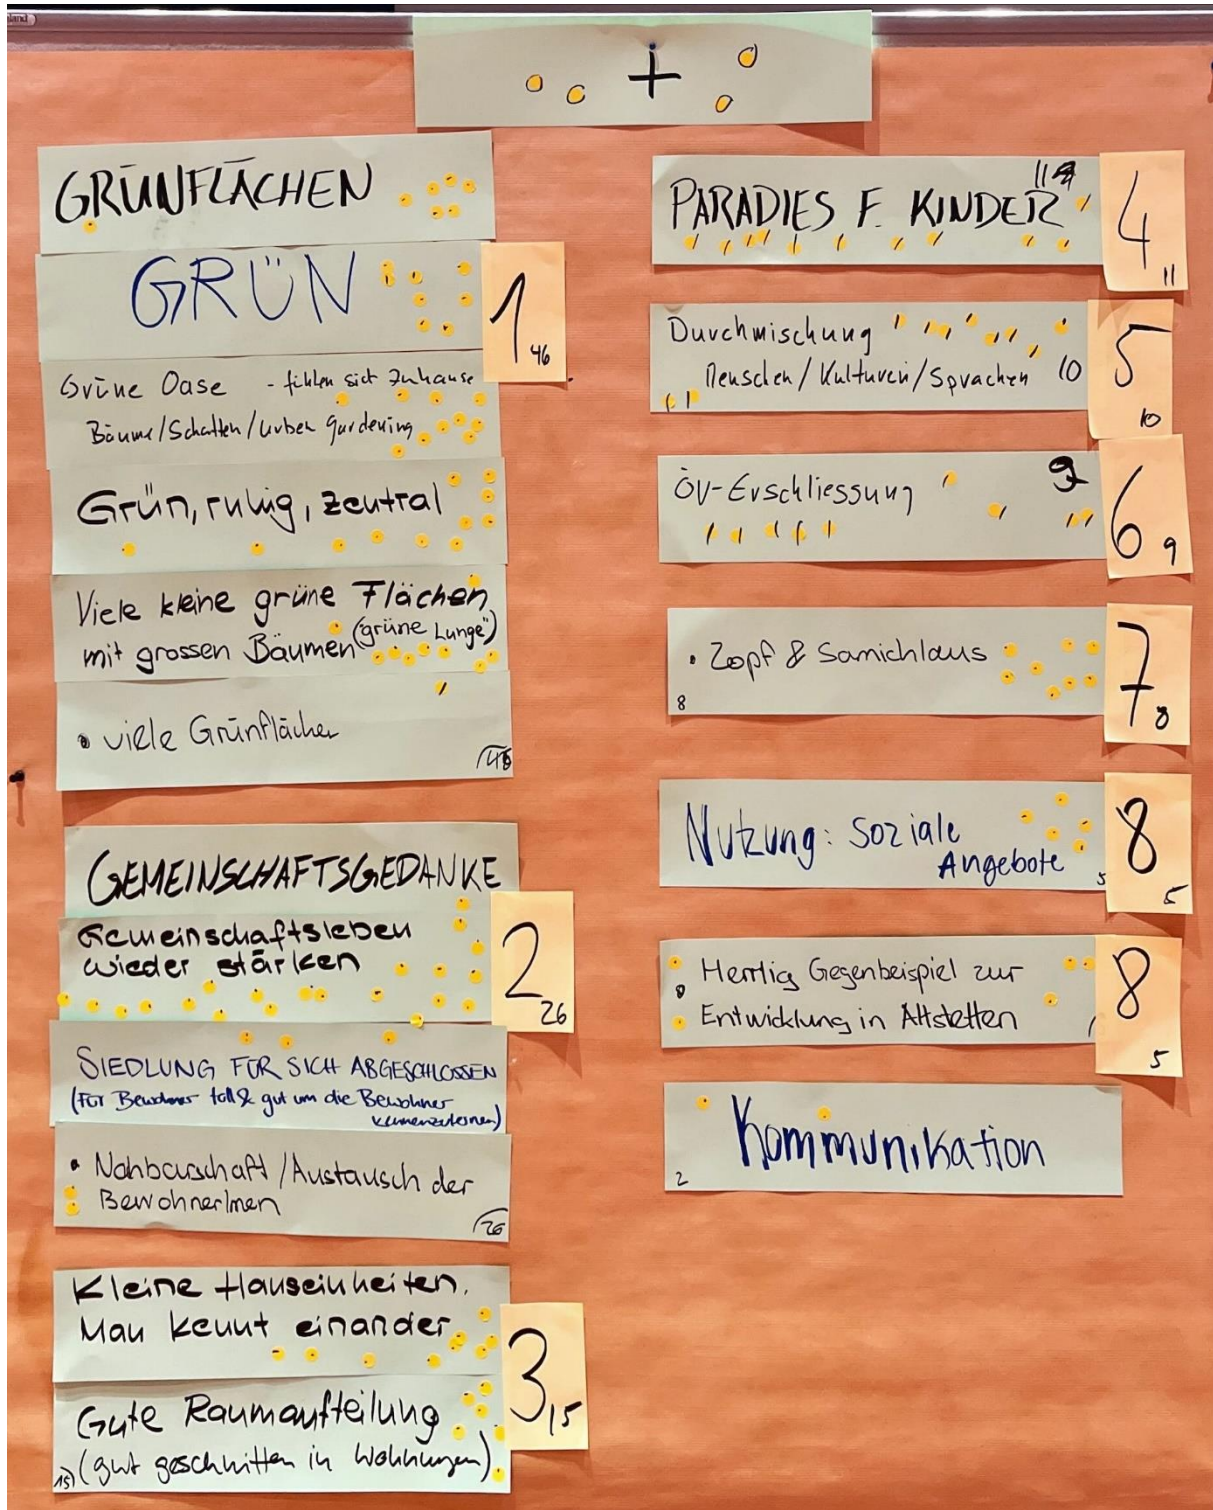 land
+
GRÜNFLÄCHEN
GRÜN
1
46
Grüne Oase - fühlen sich Zuhause
Bäume/Schatten/urben gardening
Grün, ruhig, zentral
Viele kleine grüne Flächen
mit grossen Bäumen ("grüne Lunge")
• viele Grünflächen
46
GEMEINSCHAFTSGEDANKE
Gemeinschaftsleben
wieder stärken
2
26
SIEDLUNG FÜR SICH ABGESCHLOSSEN
(Für Bewohner toll & gut um die Bewohner
kennenzulernen)
• Nahbarschaft/Austausch der
BewohnerInnen
26
Kleine Hauseinheiten.
Man kennt einander
3
15
Gute Raumaufteilung
(gut geschnitten in Wohnungen)
15)
PARADIES F. KINDER
11
4
11
Durchmischung
Menschen/Kulturen/Sprachen 10
5
10
ÖV-Erschliessung
9
6
9
• Zopf & Samichlaus
8
7
8
Nutzung: soziale
Angebote
5
8
5
• Herrlig Gegenbeispiel zur
Entwicklung in Altstetten
8
5
Kommunikation
2